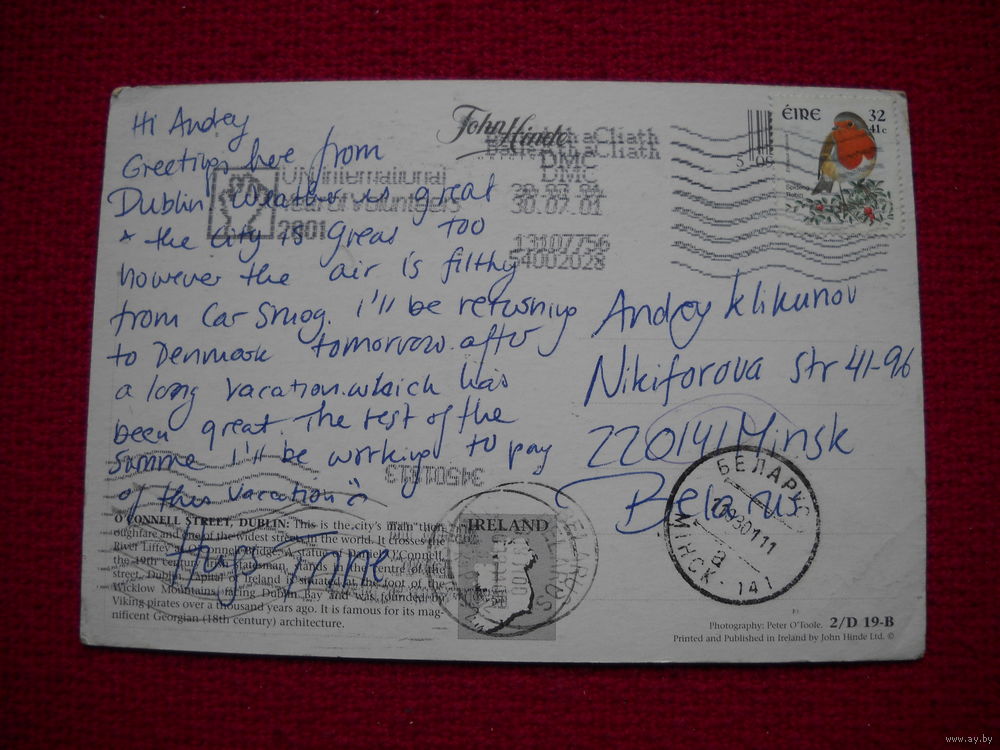 Hi Andrey
Greetings here from
Dublin weather is great
+ the city is great too
however the air is filthy
from Car smog. i'll be returning
to Denmark tomorrow. after
a long vacation. which has
been great. The rest of the
Summe i'll be working to pay
of this vacation
Hugs
John Hinde
UN International
Year of Volunteers
2001
Baile Átha Cliath
DMC
30.07.01
13107756
54002028
ÉIRE 32
41c
Andrey Klikunov
Nikiforova str 41-96
220141 Minsk
Belarus
34501613
БЕЛАРУСЬ
МІНСК 141
IRELAND
O'CONNELL STREET, DUBLIN: This is the city's main thor-
oughfare and one of the widest streets in the world. It crosses the
River Liffey at O'Connell Bridge. A statue of Daniel O'Connell,
the 19th century Irish statesman, stands in the centre of the
street. Dublin, capital of Ireland is situated at the foot of the
Wicklow Mountains, facing Dublin Bay and was founded by
Viking pirates over a thousand years ago. It is famous for its mag-
nificent Georgian (18th century) architecture.
Photography: Peter O'Toole. 2/D 19-B
Printed and Published in Ireland by John Hinde Ltd. ©
www.ay.by